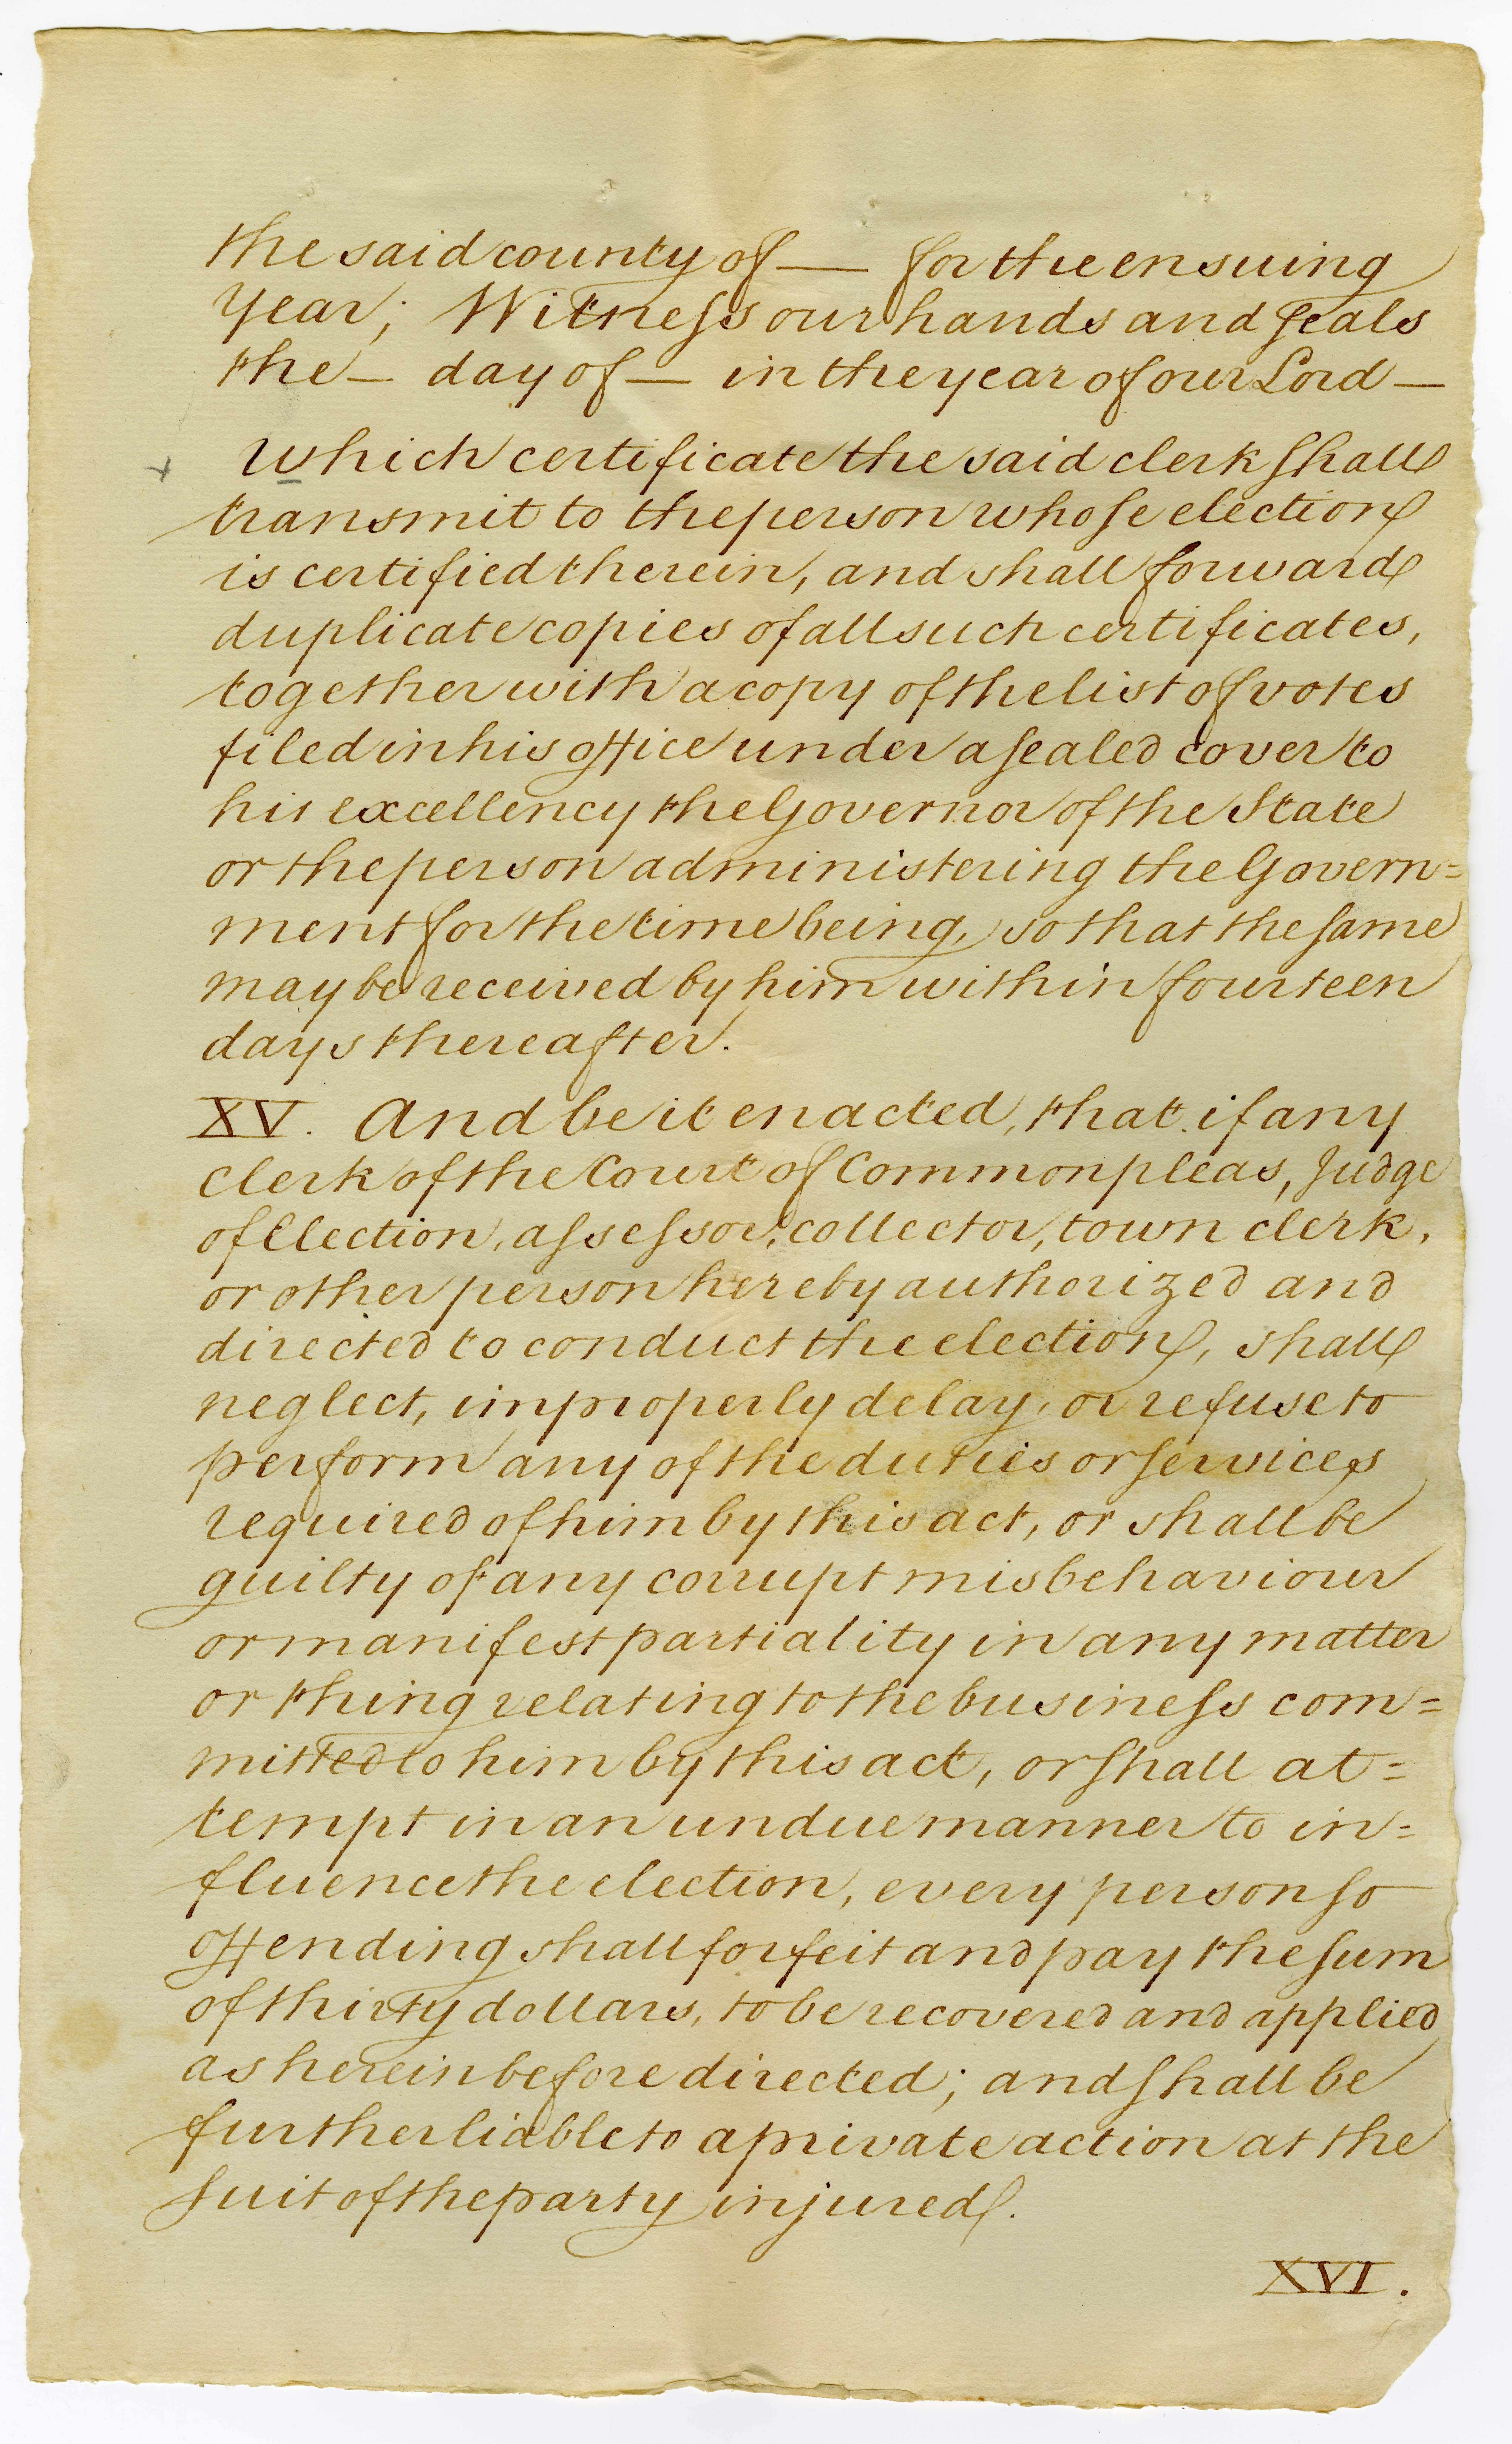 the said county of — for the ensuing
Year; Witneſs our hands and ſeals
the — day of — in the year of our Lord —
+ which certificate the said clerk ſhall
transmit to the person whoſe election
is certified therein, and shall forward
duplicate copies of all such certificates,
together with a copy of the list of votes
filed in his office under a ſealed cover to
his excellency the Governor of the State
or the person administering the Govern=
ment for the time being, so that the ſame
may be received by him within fourteen
days thereafter.
XV. And be it enacted, that if any
Clerk of the Court of Common pleas, Judge
of Election, aſseſsor, collector, town clerk,
or other person hereby authorized and
directed to conduct the election, shall
neglect, improperly delay, or refuse to
perform any of the duties or ſervices
required of him by this act, or shall be
guilty of any corrupt misbehaviour
or manifest partiality in any matter
or thing relating to the busineſs com=
mitted to him by this act, or ſhall at=
tempt in an undue manner to in=
fluence the election, every person ſo
offending shall forfeit and pay the ſum
of thirty dollars, to be recovered and applied
as herein before directed; and ſhall be
further liable to a private action at the
ſuit of the party injured.
XVI.